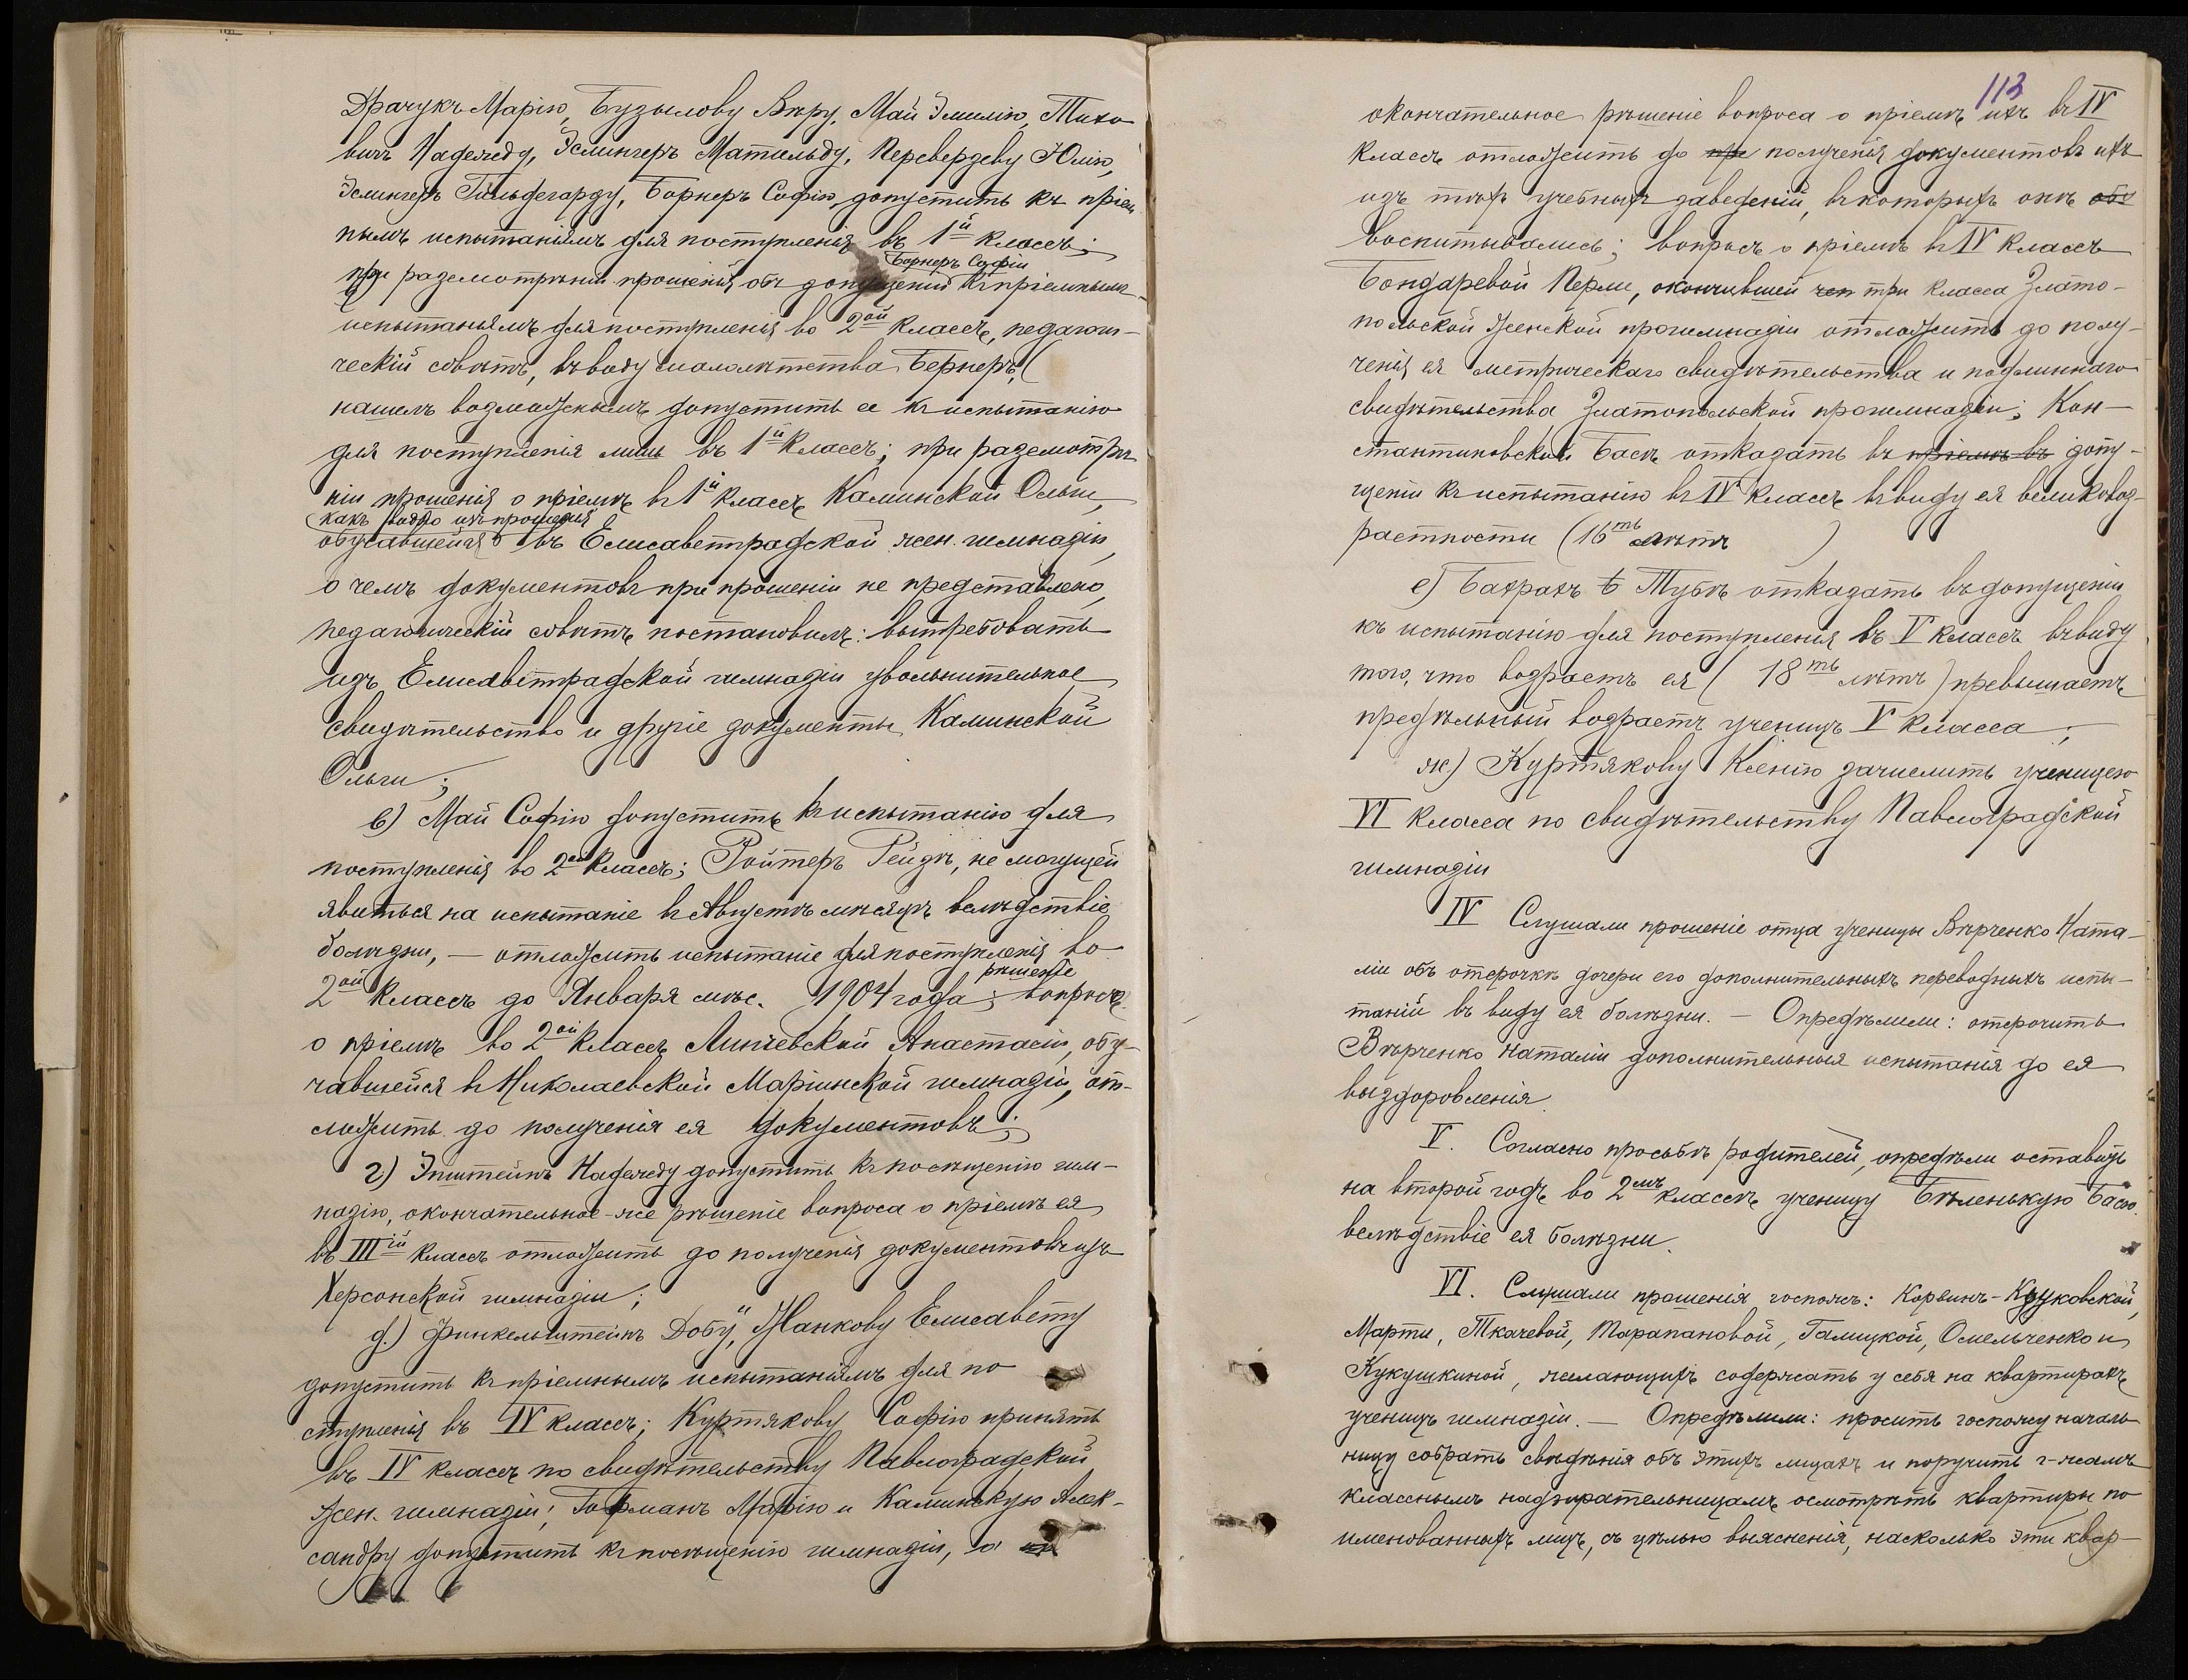 Драчукъ Марію, Бузылову Вѣру, Май Эмилію, Тихо-
вичъ Надежду, Эслингеръ Матильду, Перевердеву Юлію,
Эслингеръ Гильдегарду, Борнеръ Софію допустить къ пріем
нымъ испытаніямъ для поступленія въ 1й классъ;
Борнеръ Софіи
при разсмотрѣніи прошенія объ допущеніи къ пріемнымъ
испытаньямъ для поступленія во 2ой классъ, педагоги-
ческій совѣтъ, въ виду малолѣтства Бернеръ,
нашелъ возможнымъ допустить ее къ испытанію
для поступленія лишь въ 1й классъ; при разсмотрѣ
ніи прошенія о пріемѣ въ 1й классъ Каминской Ольги,
какъ видно изъ прошенія
обучавшейся въ Елисаветградской жен. гимназіи,
о чемъ документовъ при прошеніи не представлено,
педагогическій совѣтъ постановилъ: вытребовать
изъ Елисаветградской гимназіи увольнительное
свидѣтельство и другіе документы Каминской
Ольги;
в) Май Софію допустить къ испытанію для
поступленія во 2ой классъ; Ройтеръ Рейзѣ, не могущей
явиться на испытаніе въ Августѣ мѣсяцѣ вслѣдствіе
болѣзни, — отложить испытаніе для поступленія во
2ой классъ до Января мѣс. 1904 года; рѣшеніе вопроса
о пріемѣ во 2ой классъ Липчевской Анастасіи, обу-
чавшейся въ Николаевской Маріинской гимназіи, от-
ложить до полученія ея документовъ;
г) Эпштейнъ Надежду допустить къ посѣщенію гим-
назію, окончательное-же рѣшеніе вопроса о пріемѣ ея
въ IIIій классъ отложить до полученія документовъ изъ
Херсонской гимназіи;
д.) Финкельштейнъ Добу, Жанкову Елисавету
допустить къ пріемнымъ испытаніямъ для по
ступленія въ IV классъ; Куртякову Софію принять
въ IV классъ по свидѣтельству Павлоградской
жен. гимназіи; Гофманъ Марію и Каминскую Алек-
сандру допустить къ посѣщенію гимназіи, а
113
окончательное рѣшеніе вопроса о пріемѣ ихъ въ IV
классъ отложить до при полученія документовъ ихъ
изъ тѣхъ учебныхъ заведеній, въ которыхъ онѣ обу
воспитывались; вопросъ о пріемѣ въ IV классъ
Бондаревой Перли, окончившей чет три класса Злато-
польской женской прогимназіи отложить до полу-
ченія ея метрическаго свидѣтельства и подлиннаго
свидѣтельства Златопольской прогимназіи; Кон-
стантиновской Басѣ отказать въ пріемѣ въ допу-
щеніи къ испытанію въ IV классъ въ виду ея великовоз-
растности (16ть лѣтъ )
е) Бахрахъ Тубѣ отказать въ допущеніи
къ испытанію для поступленія въ V классъ въ виду
того, что возрастъ ея (18ть лѣтъ) превышаетъ
предѣльный возрастъ ученицъ V класса;
ж) Куртякову Ксенію зачислить ученицею
VI класса по свидѣтельству Павлоградской
гимназіи
IV Слушали прошеніе отца ученицы Вѣрченко Ната-
ліи объ отсрочкѣ дочери его дополнительныхъ переводныхъ испы-
таній въ виду ея болѣзни. — Опредѣлили: отсрочить
Вѣрченко Наталіи дополнительныя испытанія до ея
выздоровленія.
V. Согласно просьбѣ родителей, опредѣлили оставить
на второй годъ во 2мъ классѣ ученицу Бѣленькую Басю
вслѣдствіе ея болѣзни.
VI. Слушали прошенія госпожъ: Корвинъ-Круковской,
Марти, Ткачевой, Тарапановой, Галицкой, Омельченко и
Кукушкиной, желающихъ содержать у себя на квартирахъ
ученицъ гимназіи. — Опредѣлили: просить госпожу началь
ницу собрать свѣдѣнія объ этихъ лицахъ и поручить г-жамъ
класснымъ надзирательницамъ осмотрѣть квартиры по
именованныхъ лицъ, съ цѣлью выясненія, насколько эти квар-